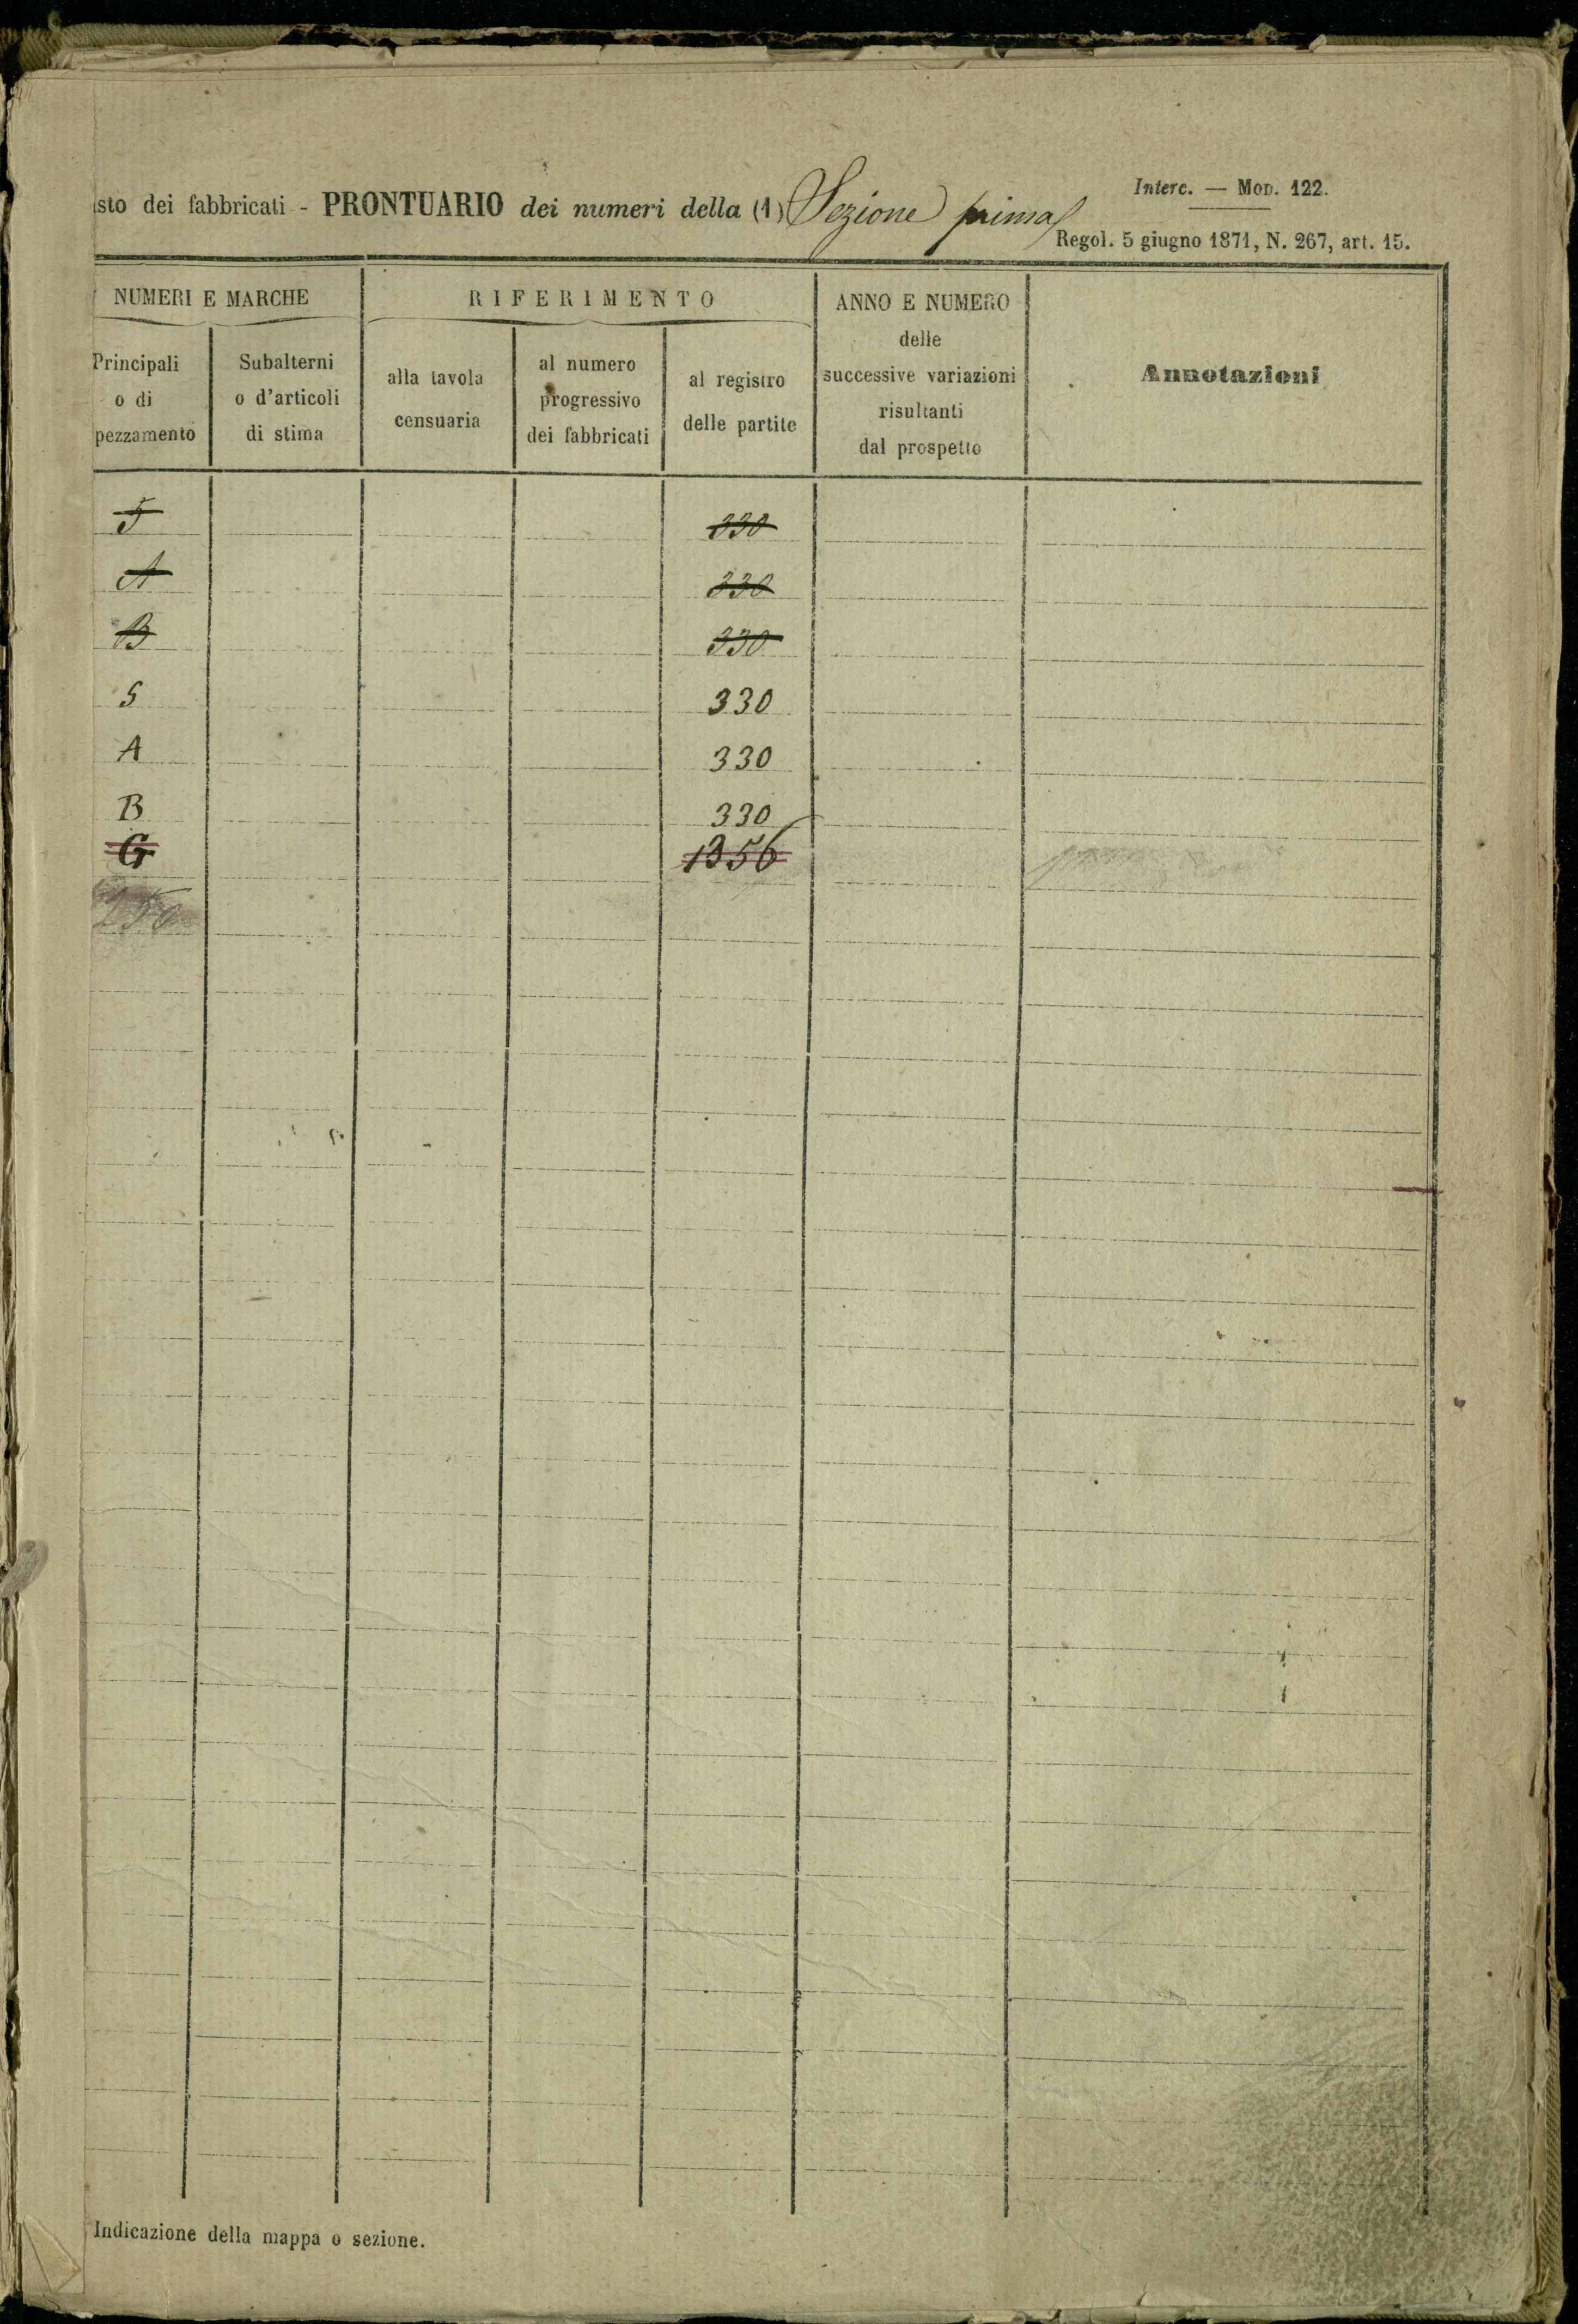 sto dei fabbricati - PRONTUARIO dei numeri della (1) Sezione prima
Interc. — Mod. 122.
Regol. 5 giugno 1871, N. 267, art. 15.
NUMERI E MARCHE
RIFERIMENTO
ANNO E NUMERO
delle
successive variazioni
risultanti
dal prospetto
Annotazioni
Principali
o di
pezzamento
Subalterni
o d'articoli
di stima
alla tavola
censuaria
al numero
progressivo
dei fabbricati
al registro
delle partite
5 330
A 330
B 330
5 330
A 330
B 330
G 1356
Indicazione della mappa o sezione.